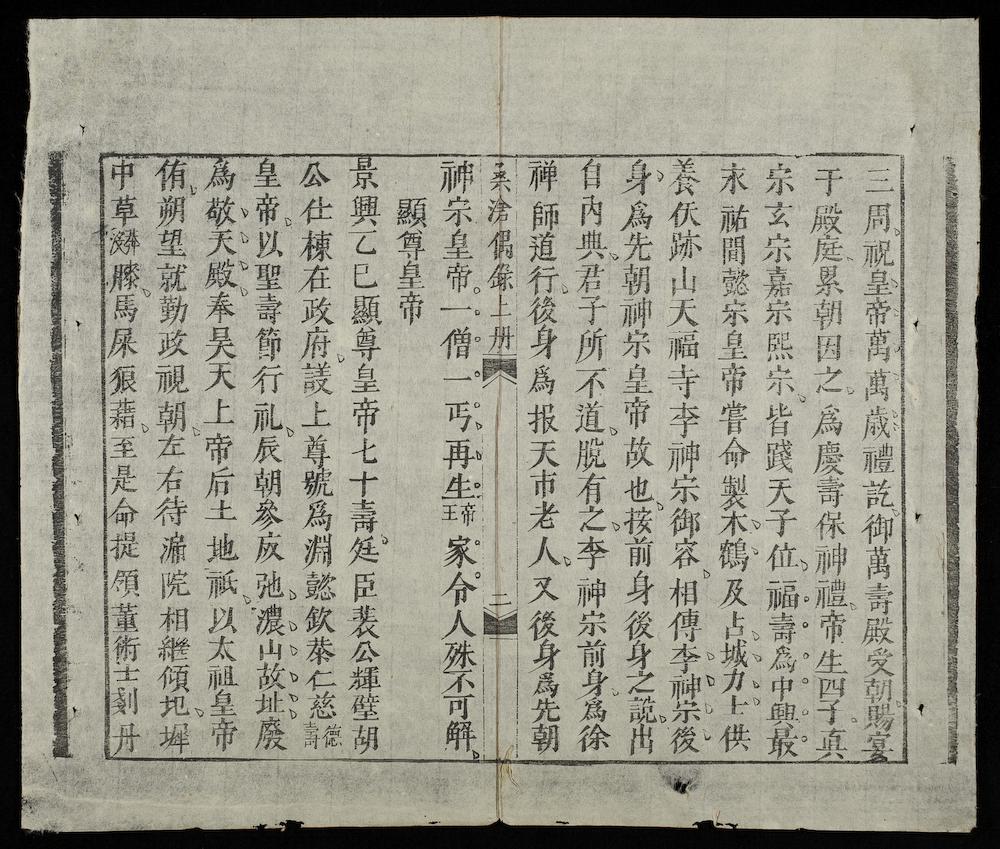 三周祝皇帝萬萬歲禮訖御萬壽殿受朝賜宴
于殿庭累朝因之為慶壽保神禮帝生四子真
宗玄宗嘉宗熙宗皆踐天子位福壽為中興最
永祐間懿宗皇帝嘗命製木鶴及占城力士供
養仸跡山天福寺李神宗御容相傳李神宗後
身為先朝神宗皇帝故也按前身後身之說出
自內典君子所不道脫有之李神宗前身為徐
禅師道行後身為报天市老人又後身為先朝
桑滄偶録上册 二
神宗皇帝一僧一丐再生帝王家令人殊不可解
顯尊皇帝
景興乙巳顯尊皇帝七十壽廷臣裴公輝璧胡
公仕棟在政府議上尊號為淵懿欽恭仁慈德壽
皇帝以聖壽節行礼辰朝參灰弛濃山故址廢
為敬天殿奉昊天上帝后土地祇以太祖皇帝
侑朔望就勤政視朝左右待漏院相繼傾圮墀
中草滕馬屎狼藉至是命提領董術士刻丹